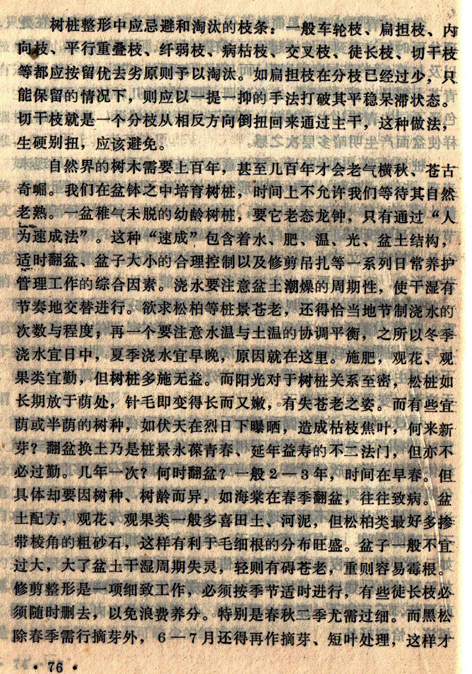 树桩整形中应忌避和淘汰的枝条：一般车轮枝、扁担枝、内
向枝、平行重叠枝、纤弱枝、病枯枝、交叉枝、徒长枝、切干枝
等都应按留优去劣原则予以淘汰。如扁担枝在分枝已经过少，只
能保留的情况下，则应以一提一抑的手法打破其平稳呆滞状态。
切干枝就是一个分枝从相反方向倒扭回来通过主干，这种做法，
生硬别扭，应该避免。
自然界的树木需要上百年，甚至几百年才会老气横秋、苍古
奇崛。我们在盆钵之中培育树桩，时间上不允许我们等待其自然
老熟。一盆稚气未脱的幼龄树桩，要它老态龙钟，只有通过“人
为速成法”。这种“速成”包含着水、肥、温、光、盆土结构，
适时翻盆、盆子大小的合理控制以及修剪吊扎等一系列日常养护
管理工作的综合因素。浇水要注意盆土潮燥的周期性，使干湿有
节奏地交替进行。欲求松柏等桩景苍老，还得恰当地节制浇水的
次数与程度；再一个要注意水温与土温的协调平衡，之所以冬季
浇水宜日中，夏季浇水宜早晚，原因就在这里。施肥，观花、观
果类宜勤，但树桩多施无益。而阳光对于树桩关系至密，松桩如
长期放于荫处，针毛即变得长而又嫩，有失苍老之姿。而有些宜
荫或半荫的树种，如伏天在烈日下曝晒，造成枯枝焦叶，何来新
芽？翻盆换土乃是桩景永葆青春、延年益寿的不二法门，但亦不
必过勤。几年一次？何时翻盆？一般2—3年，时间在早春。但
具体却要因树种、树龄而异，如海棠在春季翻盆，往往致病。盆
土配方，观花、观果类一般多喜田土、河泥，但松柏类最好多掺
带棱角的粗砂石，这样有利于毛细根的分布旺盛。盆子一般不宜
过大，大了盆土干湿周期失灵，轻则有碍苍老，重则容易霉根。
修剪整形是一项细致工作，必须按季节适时进行，有些徒长枝必
须随时删去，以免浪费养分。特别是春秋二季尤需过细。而黑松
除春季需行摘芽外，6—7月还得再作摘芽、短叶处理，这样才
• 76 •